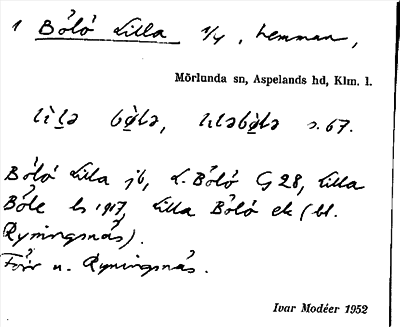 1 Bölö Lilla 1/4, hemman,
Mörlunda sn, Aspelands hd, Klm. l.
s. 67.
Bölö Lilla jb, L. Bölö G 28, Lilla
Böle ls 1917, Lilla Bölö ek (bl.
Ryningsnäs).
Förr u. Ryningsnäs.
Ivar Modéer 1952